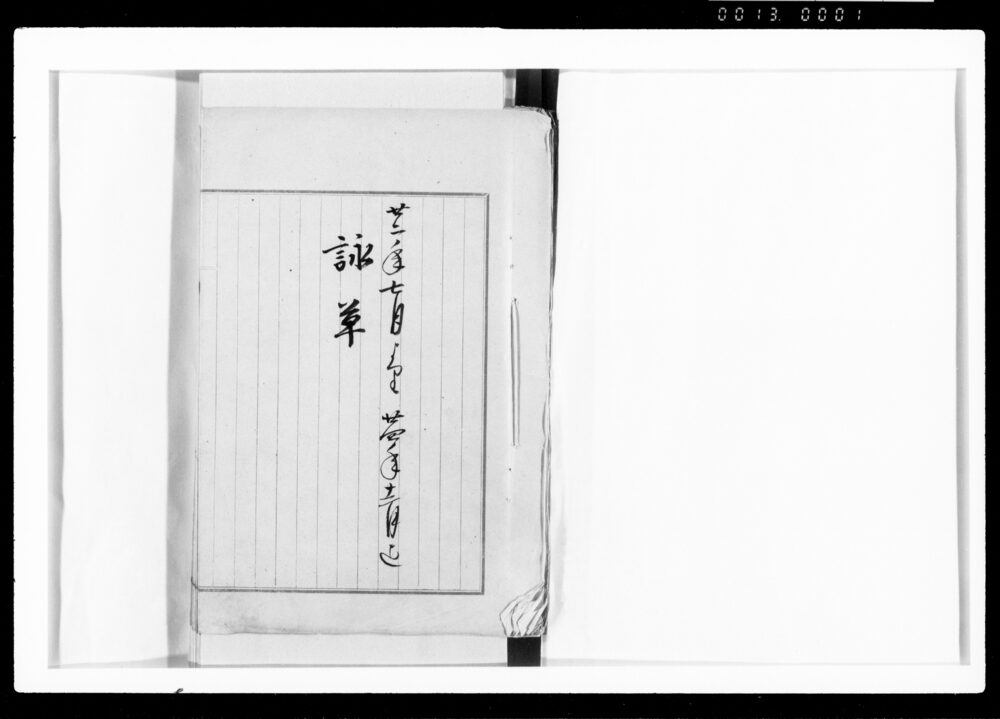 0013. 0001
廿二年七月より廿四年十二月迄
詠草